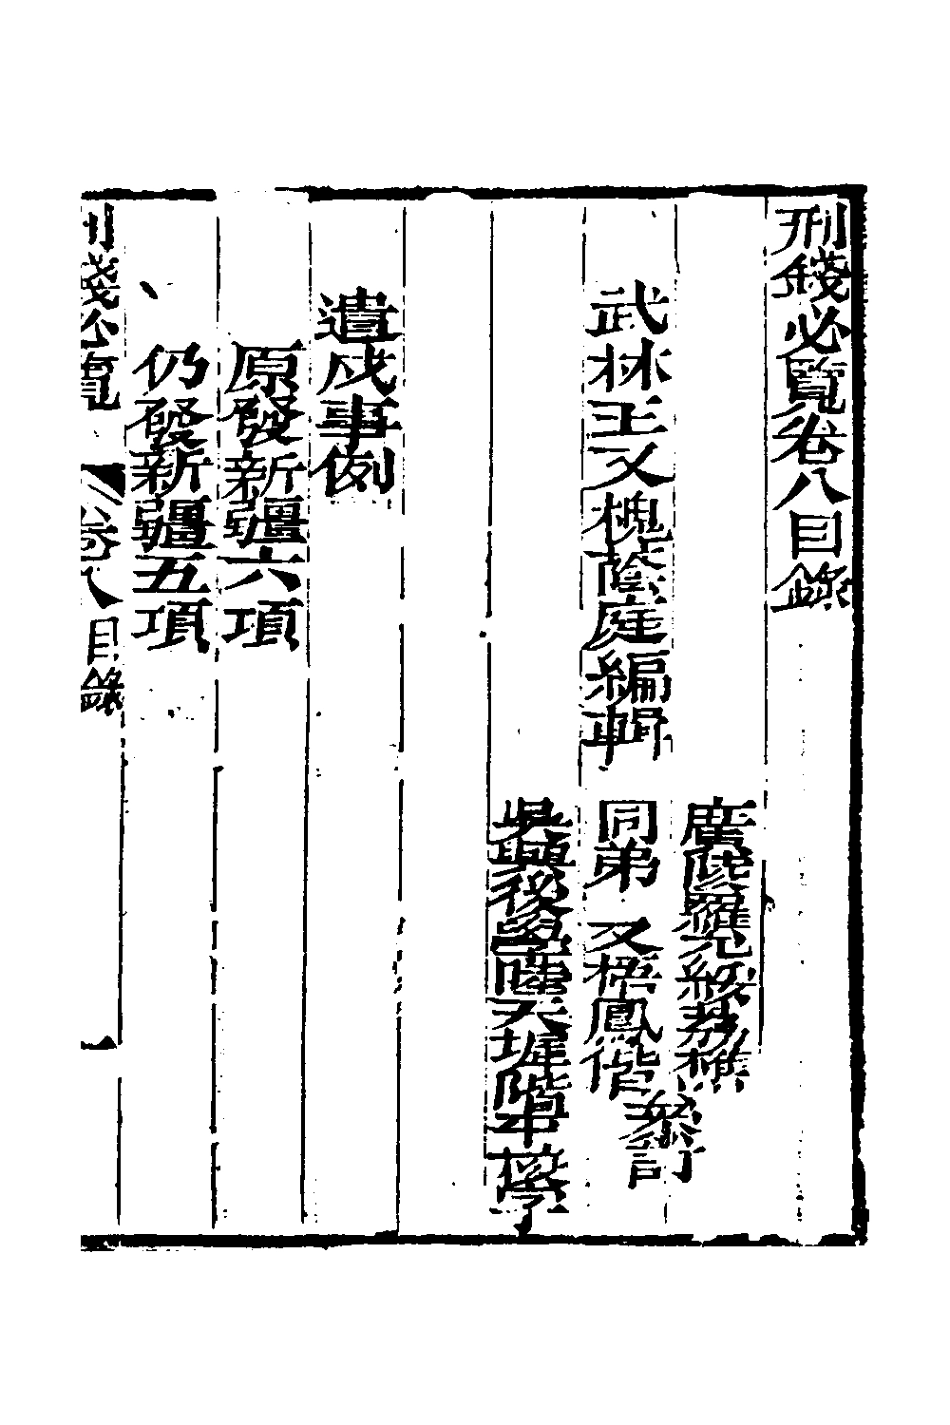 刑錢必覽卷八目錄
廣陵羅允綏茘橫
武林王又槐蔭庭編輯 同弟 又梧鳳偕 叅訂
吳興後學陸天墀階平校字
遣戍事例
原發新疆六項
仍發新疆五項
刑錢必覽 卷八 目錄 一